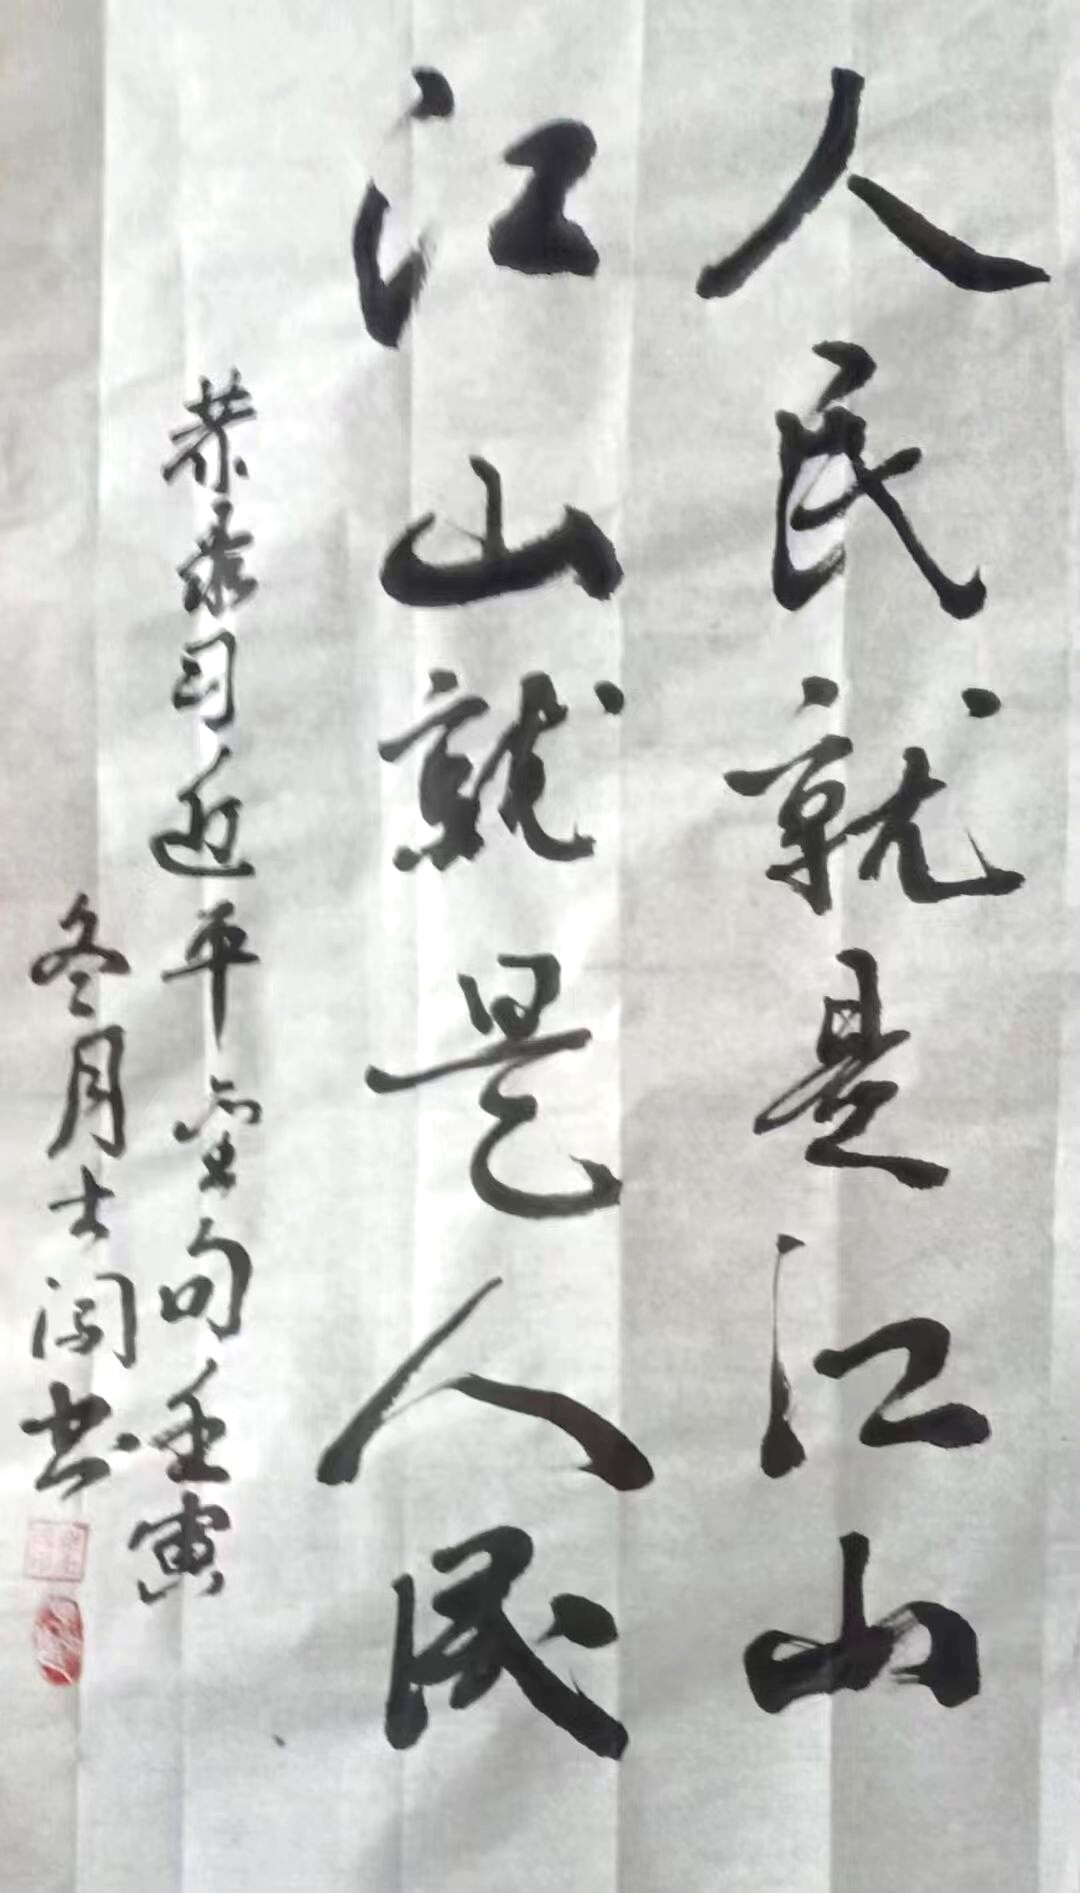 人民就是江山
江山就是人民
恭录习近平金句壬寅
冬月士闯书